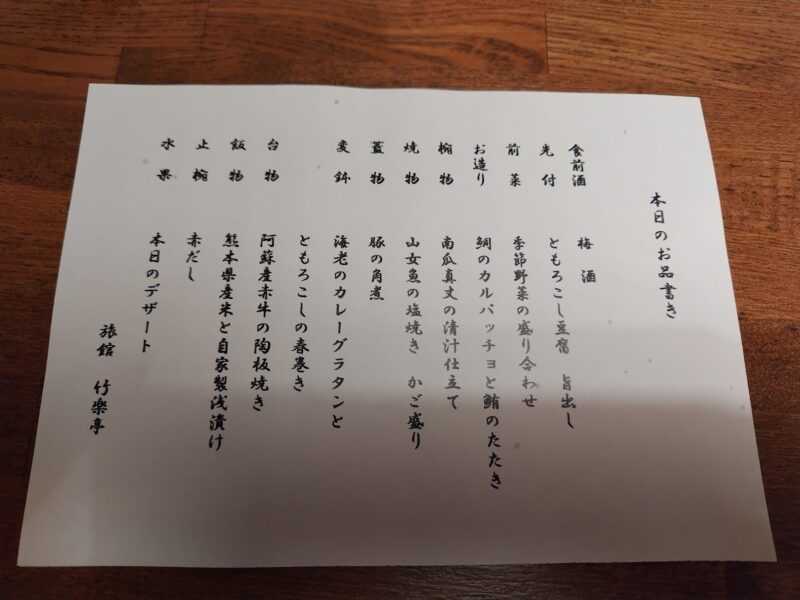 本日のお品書き
食前酒 梅酒
先付 ともろこし豆腐 旨出し
前菜 季節野菜の盛り合わせ
お造り 鯛のカルパッチョと鮪のたたき
椀物 南瓜真丈の清汁仕立て
焼物 山女魚の塩焼き かご盛り
蓋物 豚の角煮
変鉢 海老のカレーグラタンと
ともろこしの春巻き
台物 阿蘇産赤牛の陶板焼き
飯物 熊本県産米と自家製浅漬け
止椀 赤だし
水菓 本日のデザート
旅館 竹楽亭